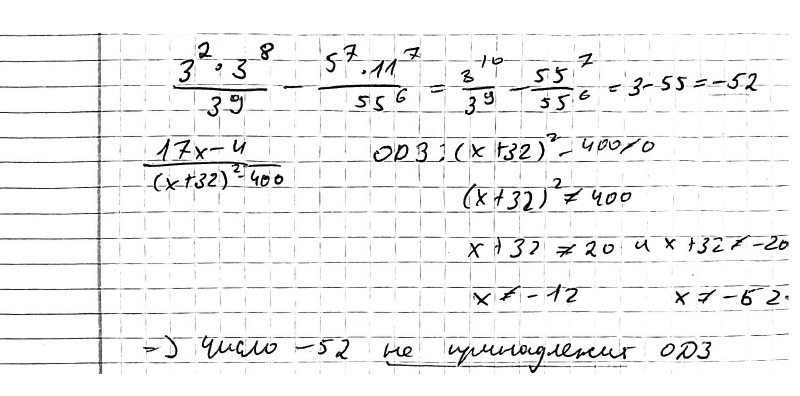 3² · 3⁸ / 3⁹ − 5⁷ · 11⁷ / 55⁶ = 3¹⁰ / 3⁹ − 55⁷ / 55⁶ = 3 − 55 = −52
17x − 4 / (x+32)² − 400 ОДЗ: (x+32)² − 400 ≠ 0
(x+32)² ≠ 400
x + 32 ≠ 20 и x + 32 ≠ −20
x ≠ −12 x ≠ −52.
=> число −52 не принадлежит ОДЗ